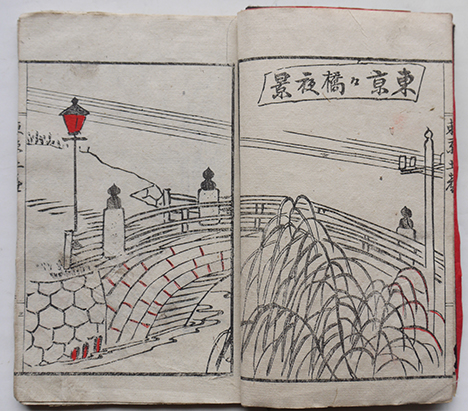 東京々橋夜景